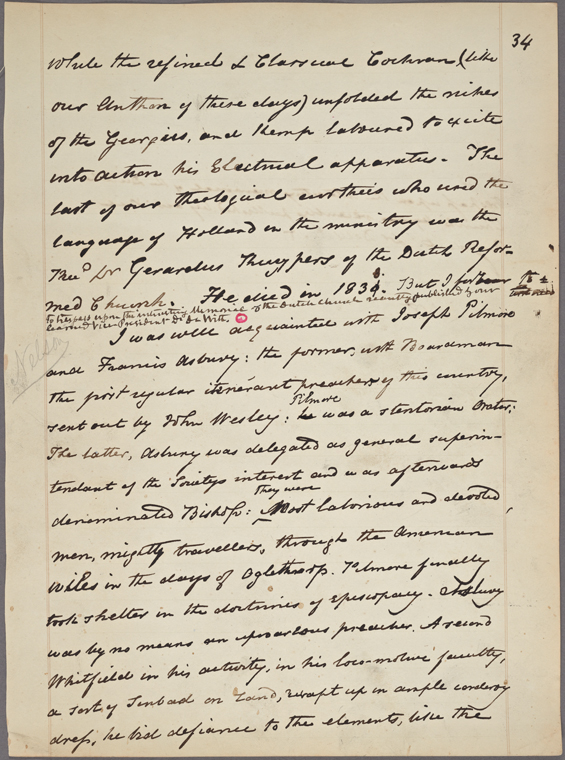 34
While the refined & Classical Cochran (like
our Anthon of these days) unfolded the riches
of the Georgics, and Kemp laboured to excite
into action his Electrical apparatus. The
last of our theological worthies who used the
language of Holland in the ministry was the
Rev.d Dr Gerardus Kuypers of the Dutch Refor-
med Church. He died in 1833. But I forbear to
trespass upon the interesting Memoires of the Dutch Church recently published by our
learned Vice President Dr De Witt.
I was well acquainted with Joseph Pilmore
and Francis Asbury: the former, with Boardman
the first regular itinerant preachers of this country,
sent out by John Wesley: Pilmore was a stentorian orator:
The latter, Asbury was delegated as general superin-
tendant of the Societys interest and was afterwards
denominated Bishop: they were Most laborious and devoted
men, mighty travellers, through the American
wilds in the days of Oglethorp. Pilmore finally
took shelter in the doctrines of Episcopacy. Asbury
was by no means an uproarious preacher. A second
Whitfield in his activity, in his loco-motive faculty,
a sort of Sinbad on Land, wrapt up in ample corderoy
dress, he bid defiance to the elements, like the